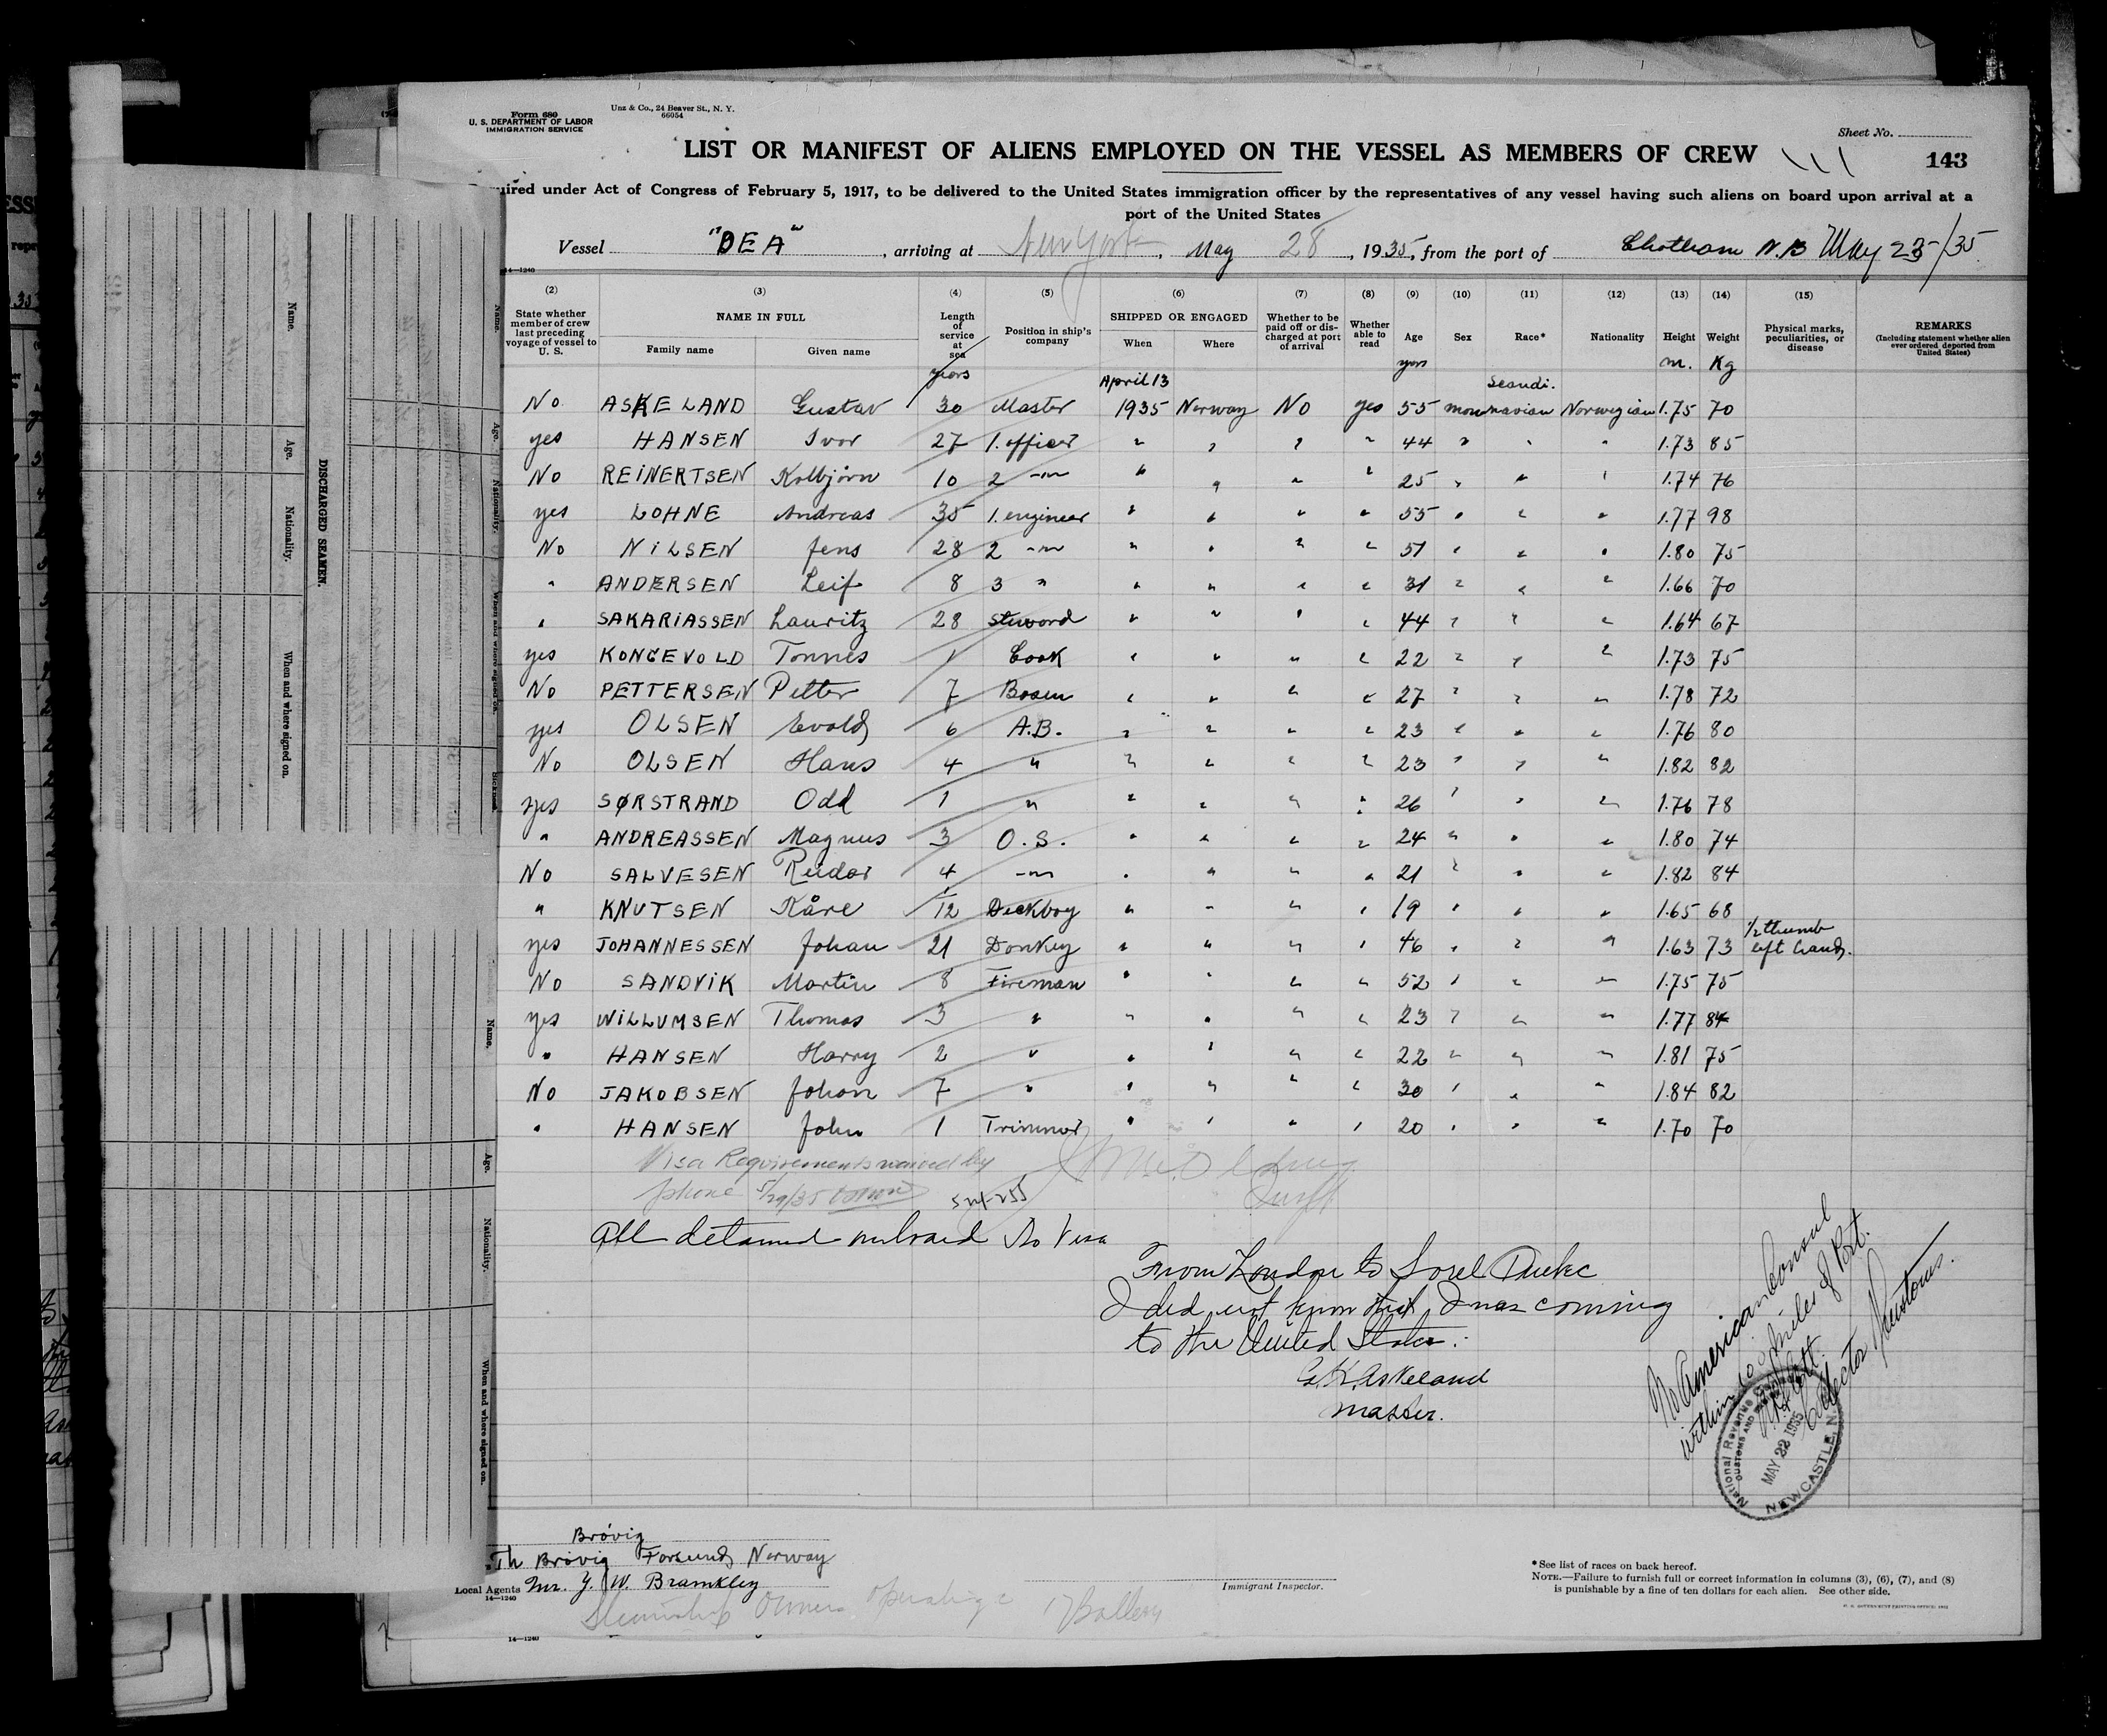 Form 680
U. S. DEPARTMENT OF LABOR
IMMIGRATION SERVICE
Unz & Co., 24 Beaver St., N. Y.
66054
Sheet No.
LIST OR MANIFEST OF ALIENS EMPLOYED ON THE VESSEL AS MEMBERS OF CREW
143
uired under Act of Congress of February 5, 1917, to be delivered to the United States immigration officer by the representatives of any vessel having such aliens on board upon arrival at a
port of the United States
Vessel "DEA", arriving at New York, May 28, 1935, from the port of Chatham N.B May 23/35
14—1240
(2) (3) (4) (5) (6) (7) (8) (9) (10) (11) (12) (13) (14) (15)
State whether member of crew last preceding voyage of vessel to U. S.
NAME IN FULL
Family name Given name
Length of service at sea
Position in ship's company
SHIPPED OR ENGAGED
When Where
Whether to be paid off or discharged at port of arrival
Whether able to read
Age Sex Race* Nationality Height Weight
Physical marks, peculiarities, or disease
REMARKS
(Including statement whether alien ever ordered deported from United States)
years yrs m. Kg
April 13 Scandi.
No ASKELAND Gustav 30 Master 1935 Norway No yes 55 man navian Norwegian 1.75 70
yes HANSEN Ivor 27 1. officer " " " " 44 " " " 1.73 85
No REINERTSEN Kolbjörn 10 2 -"- " " " " 25 " " " 1.74 76
yes LOHNE Andreas 35 1. engineer " " " " 55 " " " 1.77 98
No NILSEN Jens 28 2 -"- " " " " 51 " " " 1.80 75
" ANDERSEN Leif 8 3 " " " " " 31 " " " 1.66 70
" SAKARIASSEN Lauritz 28 Steword " " " " 44 " " " 1.64 67
yes KONGEVOLD Tonnes 1 Cook " " " " 22 " " " 1.73 75
No PETTERSEN Petter 7 Bosen " " " " 27 " " " 1.78 72
yes OLSEN Evald 6 A.B. " " " " 23 " " " 1.76 80
No OLSEN Hans 4 " " " " " 23 " " " 1.82 82
yes SØRSTRAND Odd 1 " " " " " 26 " " " 1.76 78
" ANDREASSEN Magnus 3 O.S. " " " " 24 " " " 1.80 74
No SALVESEN Reidar 4 -"- " " " " 21 " " " 1.82 84
" KNUTSEN Kåre 1/12 Deckboy " " " " 19 " " " 1.65 68
yes JOHANNESSEN Johan 21 Donkey " " " " 46 " " " 1.63 73 1/2 thumb left hand.
No SANDVIK Martin 8 Fireman " " " " 52 " " " 1.75 75
yes WILLUMSEN Thomas 3 " " " " " 23 " " " 1.77 84
" HANSEN Harry 2 " " " " " 22 " " " 1.81 75
No JAKOBSEN Johan 7 " " " " " 30 " " " 1.84 82
" HANSEN John 1 Trimmer " " " " 20 " " " 1.70 70
Visa Requirements waived by
phone 5/29/35
All detained onboard No Visa
From London to Sorel Quebec
I did not know that I was coming
to the United States.
G.K. Askeland
Master.
No American Consul
within 100 miles of Port.
Collector Customs.
National Revenue
CUSTOMS AND
MAY 22 1935
NEWCASTLE, N.
Brövig
Th Brövig Farsund, Norway
Local Agents Mr. J. W. Bramkley
14—1240
Steamship Owners operating
Immigrant Inspector.
*See list of races on back hereof.
NOTE.—Failure to furnish full or correct information in columns (3), (6), (7), and (8)
is punishable by a fine of ten dollars for each alien. See other side.
14—1240
DISCHARGED SEAMEN.
Name.
Age.
Nationality.
When and where signed on.
Name.
Age.
Nationality.
When and where signed on.